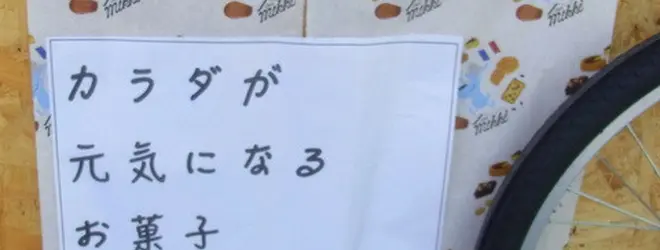 mikki
mikki
カラダが
元気になる
お菓子
mikki